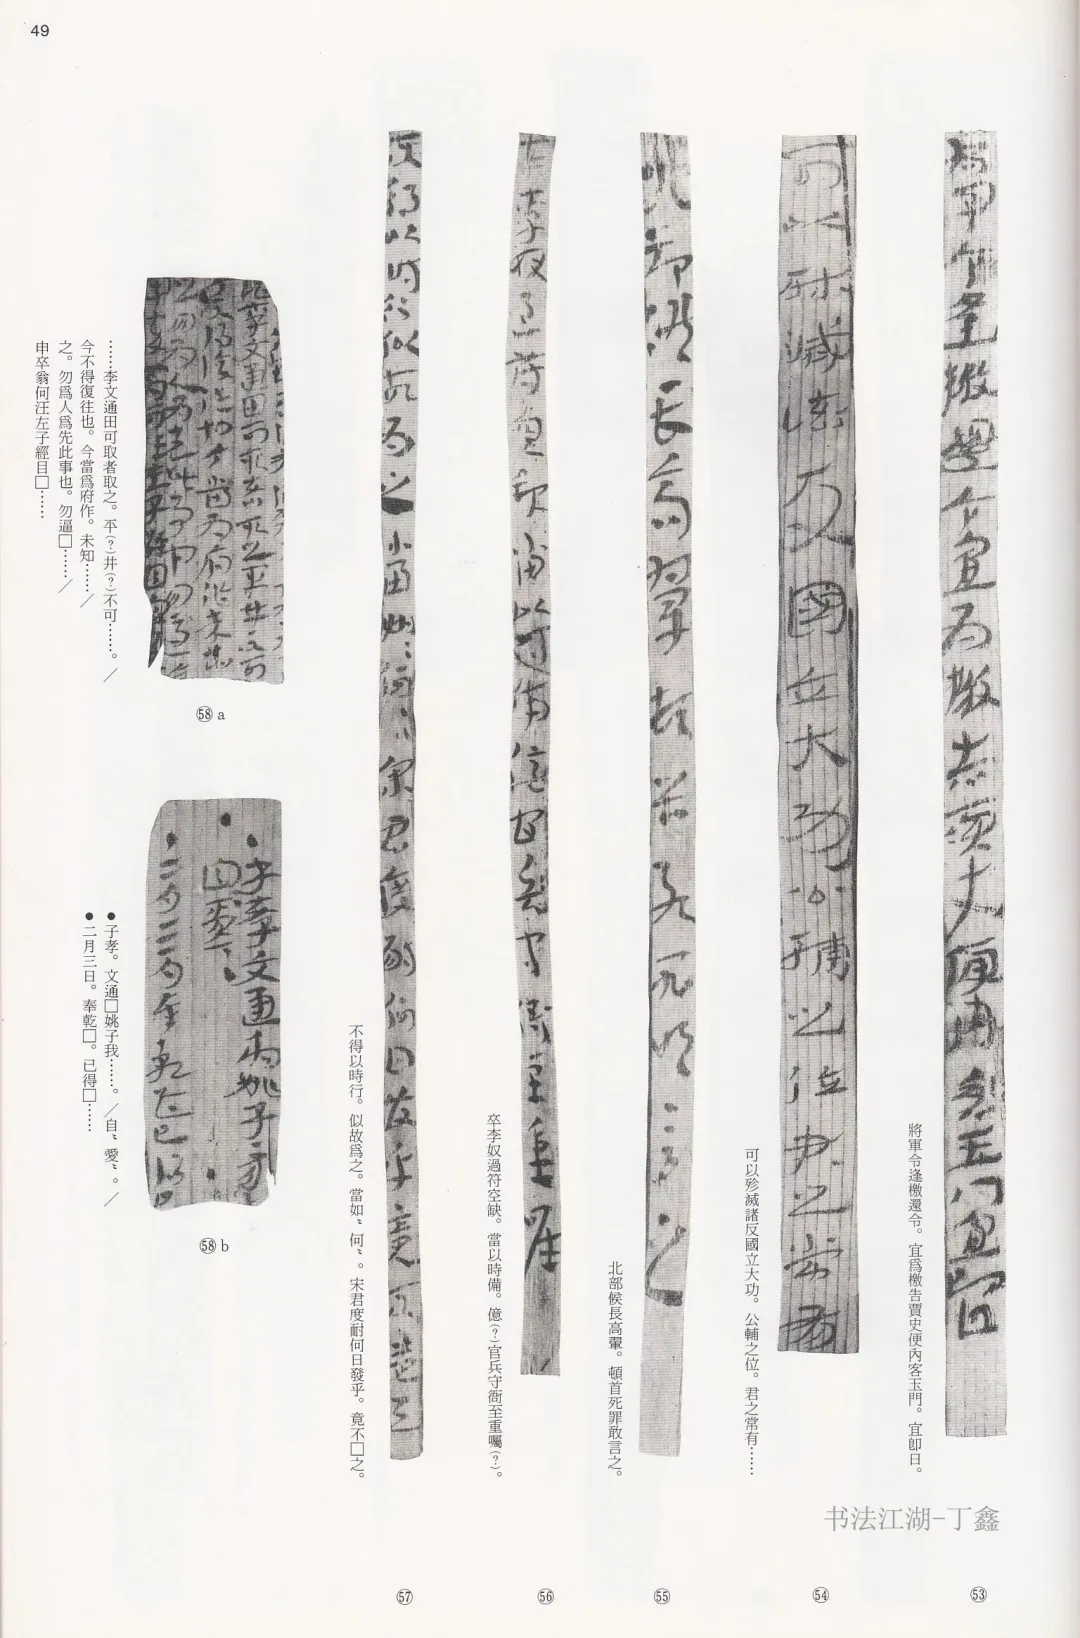 49
將軍令逢檄還令。宜爲檄告賈史便內客玉門。宜卽日。
㊼
可以殄滅諸反國立大功。公輔之位。君之常有……
北部候長高翬。頓首死罪敢言之。
卒李奴過符空缺。當以時備。億(?)官兵守衙至重囑(?)。
不得以時行。似故爲之。當如〻何〻。宋君度耐何日發乎。竟不□之。
……李文通田可取者取之。平(?)井(?)不可……。／
今不得復往也。今當爲府作。未知……／
之。勿爲人爲先此事也。勿逼□……／
申卒翁何汪左子經目□……
58 a
●子孝。文通□姚子我……。／自〻愛〻。／
●二月三日。奉乾□。已得□……
58 b
书法江湖-丁鑫
53
54
55
56
57